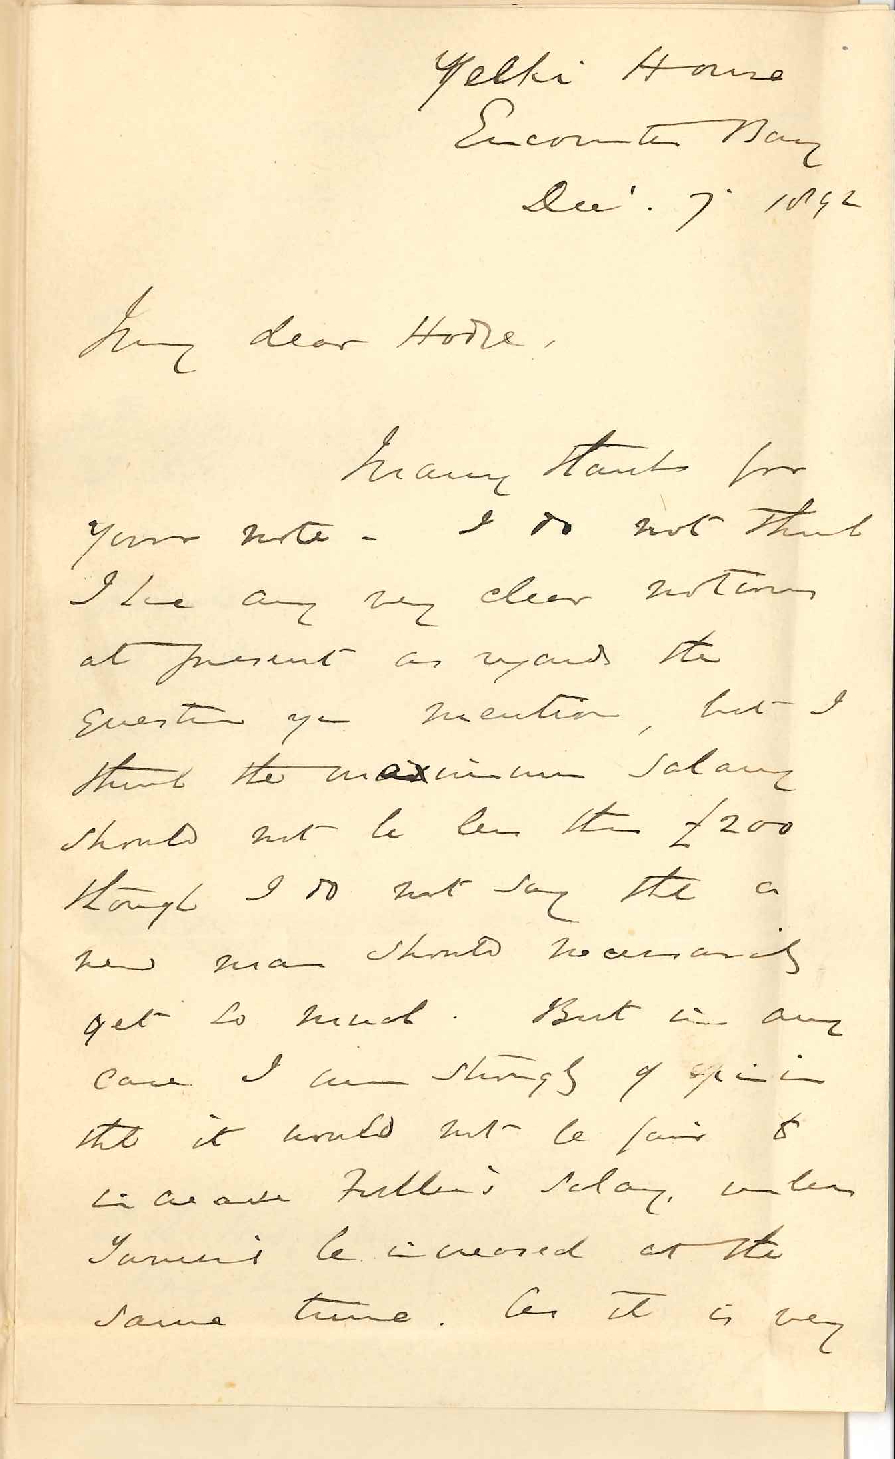 Yelki House
Encounter Bay
Dec'. 7. 1892
My dear Hodge,
Many thanks for
your note - I do not think
I have any very clear notions
at present as regards the
question you mention, but I
think the maximum salary
should not be less than £200
though I do not say that a
new man should necessarily
get so much. But in any
case I am strongly of opinion
that it would not be fair to
increase Fuller's salary, unless
be increased at the
same time. As it is very